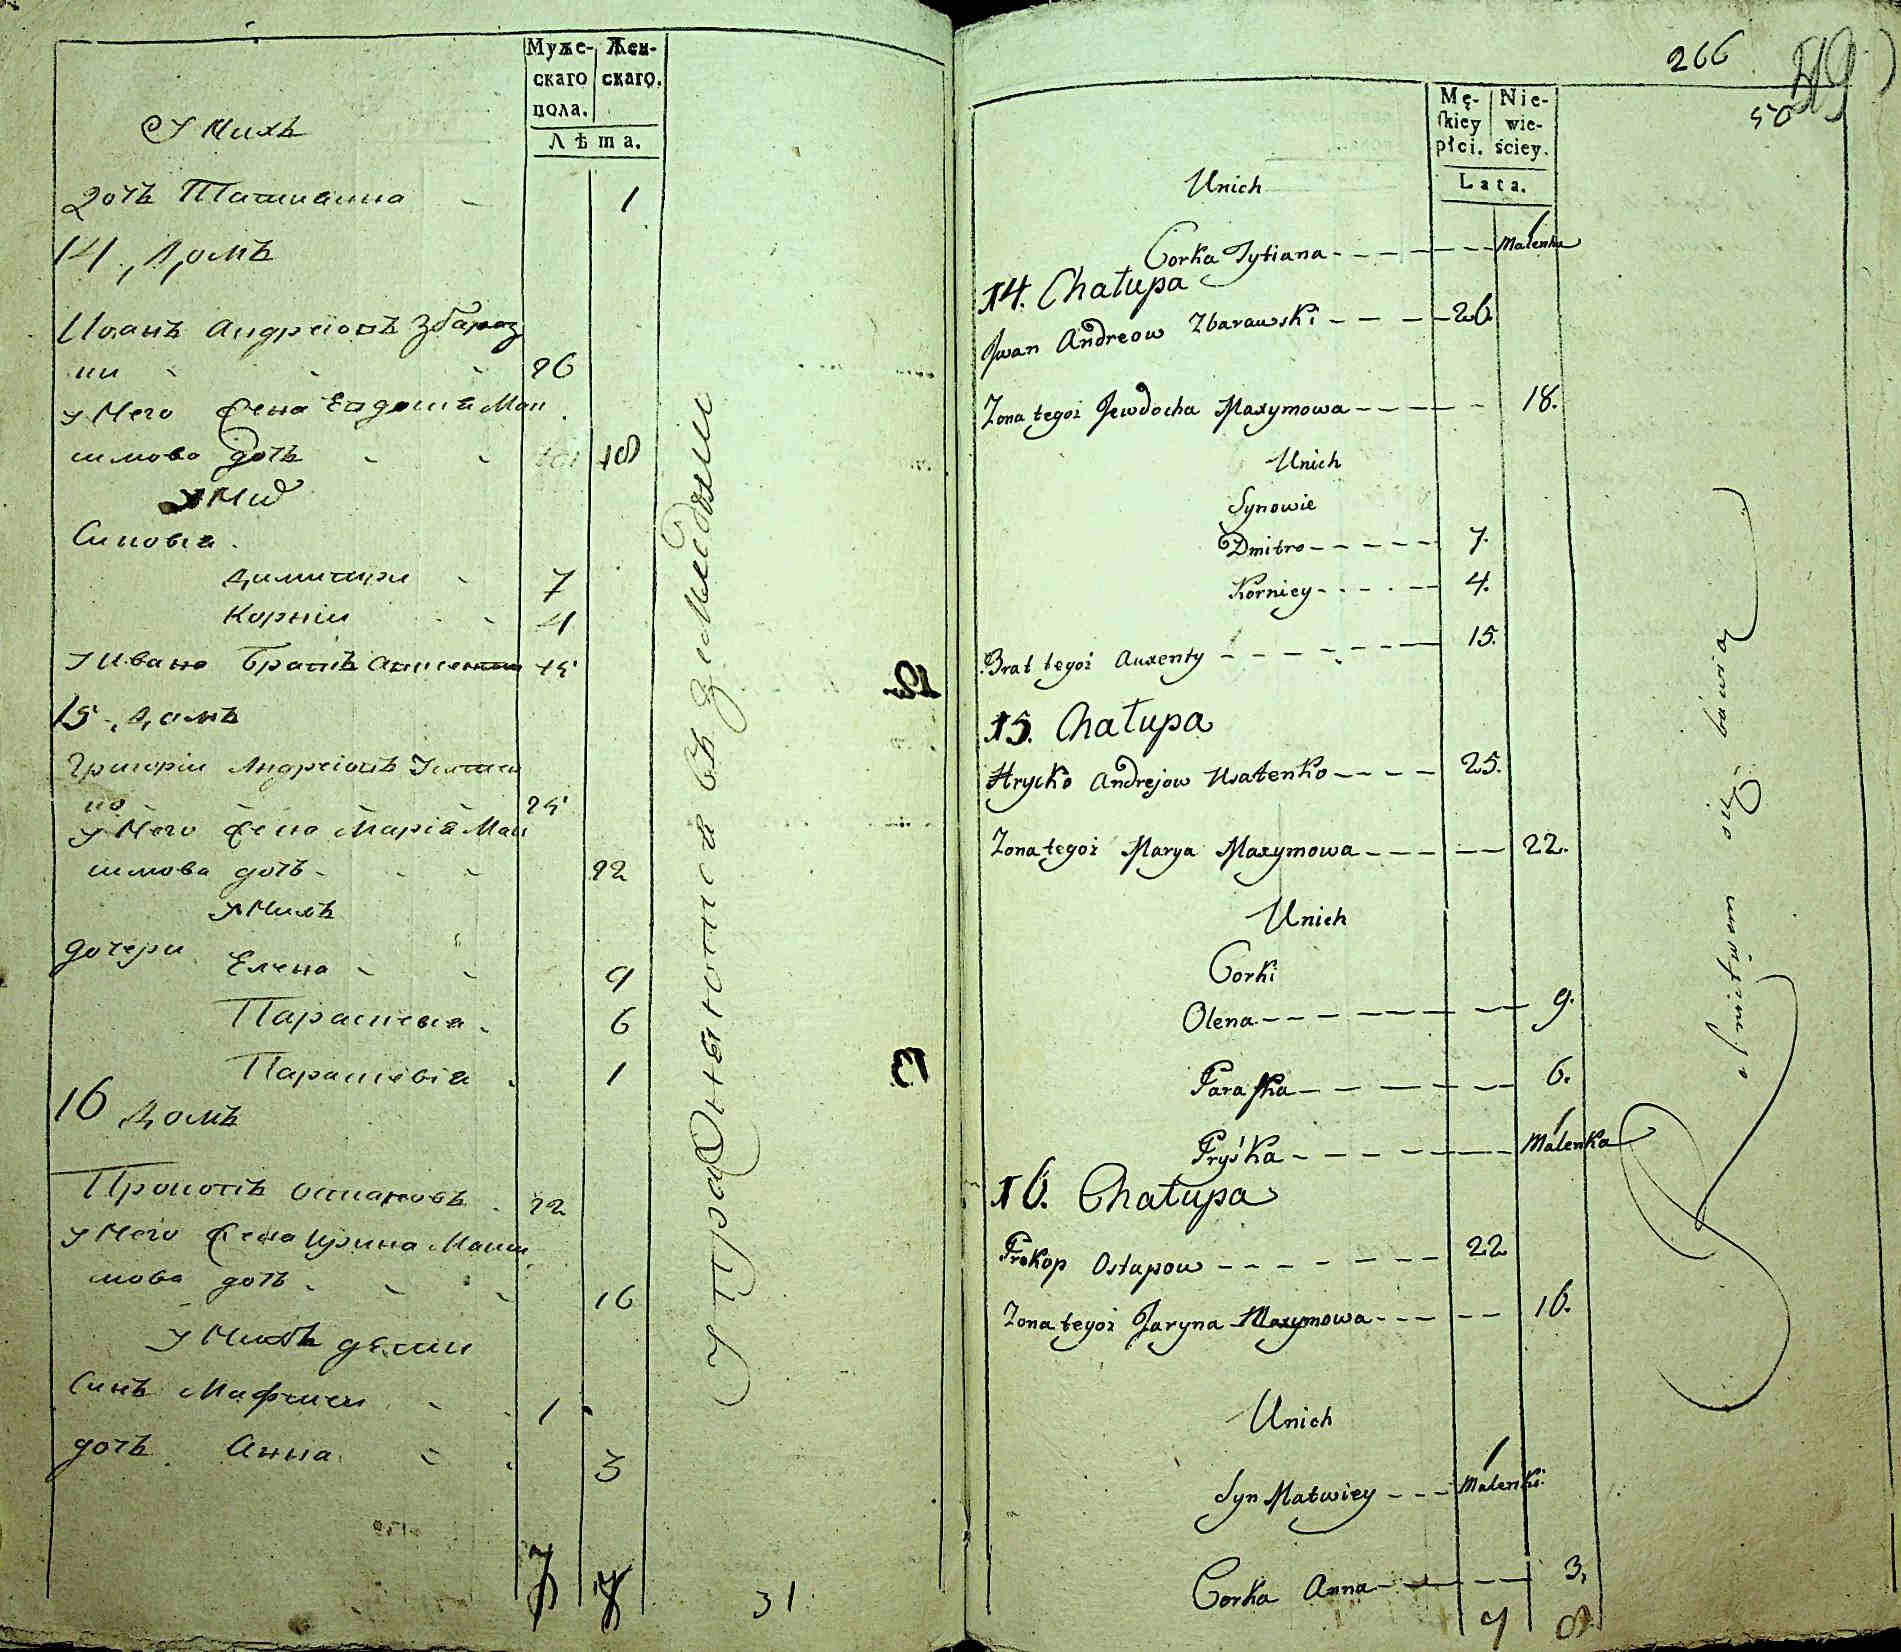 Муже-
скаго
пола.
Жен-
скаго.
Лѣта.
У Нихъ
дочь Татианна 1
14. Домъ
Иванъ Андреіовъ Збаров
ски 26
у Него Жена Евдокиа Мак
симова дочь 18
у Них
Синовиа
Димитри 7
Корнии 4
У Ивана Братъ 15
15. Домъ
Григории Андреіовъ Усатен
ко 25
у Него жена Мария Мак
симова дочь 22
у Нихъ
дочери
Елена 9
Параскевиа 6
Параскевиа 1
16 Домъ
Прокопъ Остаповъ 22
у Него жена Ирина Макси
мова дочь 16
у Нихъ дети
Синъ Матфеи 1
дочь Анна 3
7 7
31
266
50
Mę-
skiey
płci.
Nie-
wie-
ściey.
Lata.
Unich
Corka Tytiana 1 Malenka
14. Chałupa
Jwan Andreow Zbarawski 26
Zona tegoż Jewdocha Maxymowa 18.
Unich
Synowie
Dmitro 7.
Korniey 4.
Brat tegoż Auxenty 15.
15. Chałupa
Hrycko Andrejow Usatenko 25.
Zona tegoż Marya Maxymowa 22.
Unich
Corki
Olena 9.
Paraska 6.
Pryśka 1 Malenka
16. Chałupa
Prokop Ostapow 22
Zona tegoż Jaryna Maxymowa 16.
Unich
Syn Matwiey 1 Malenki
Corka Anna 3.
7 8
się bawią